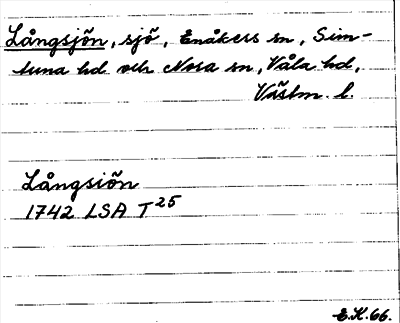 Långsjön, sjö, Enåkers sn, Sim-
tuna hd och Nora sn, Våla hd,
Västm. l.
Långsiön
1742 LSA T25
E.K.66.